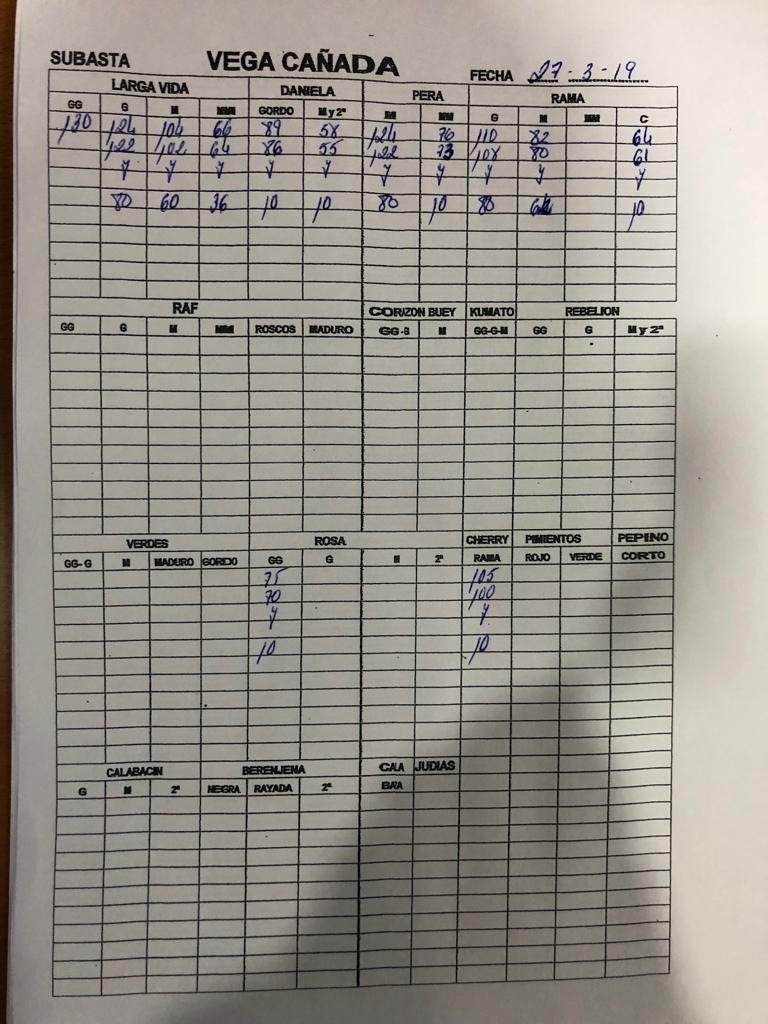 SUBASTA VEGA CAÑADA FECHA 27-3-19
LARGA VIDA DANIELA PERA RAMA
GG G M MM GORDO M y 2ª M MM G M MM C
130 124 104 66 89 58 124 76 110 82 64
122 102 64 86 55 122 73 108 80 61
y y y y y y y y y y
80 60 36 10 10 80 10 80 10
RAF CORAZON BUEY KUMATO REBELION
GG G M MM ROSCOS MADURO GG-G M GG-G-M GG G M y 2ª
VERDES ROSA CHERRY PIMIENTOS PEPINO
GG-G M MADURO GORDO GG G M 2ª RAMA ROJO VERDE CORTO
75 105
70 100
y y
10 10
CALABACIN BERENJENA CALA JUDIAS
G M 2ª NEGRA RAYADA 2ª BAZA